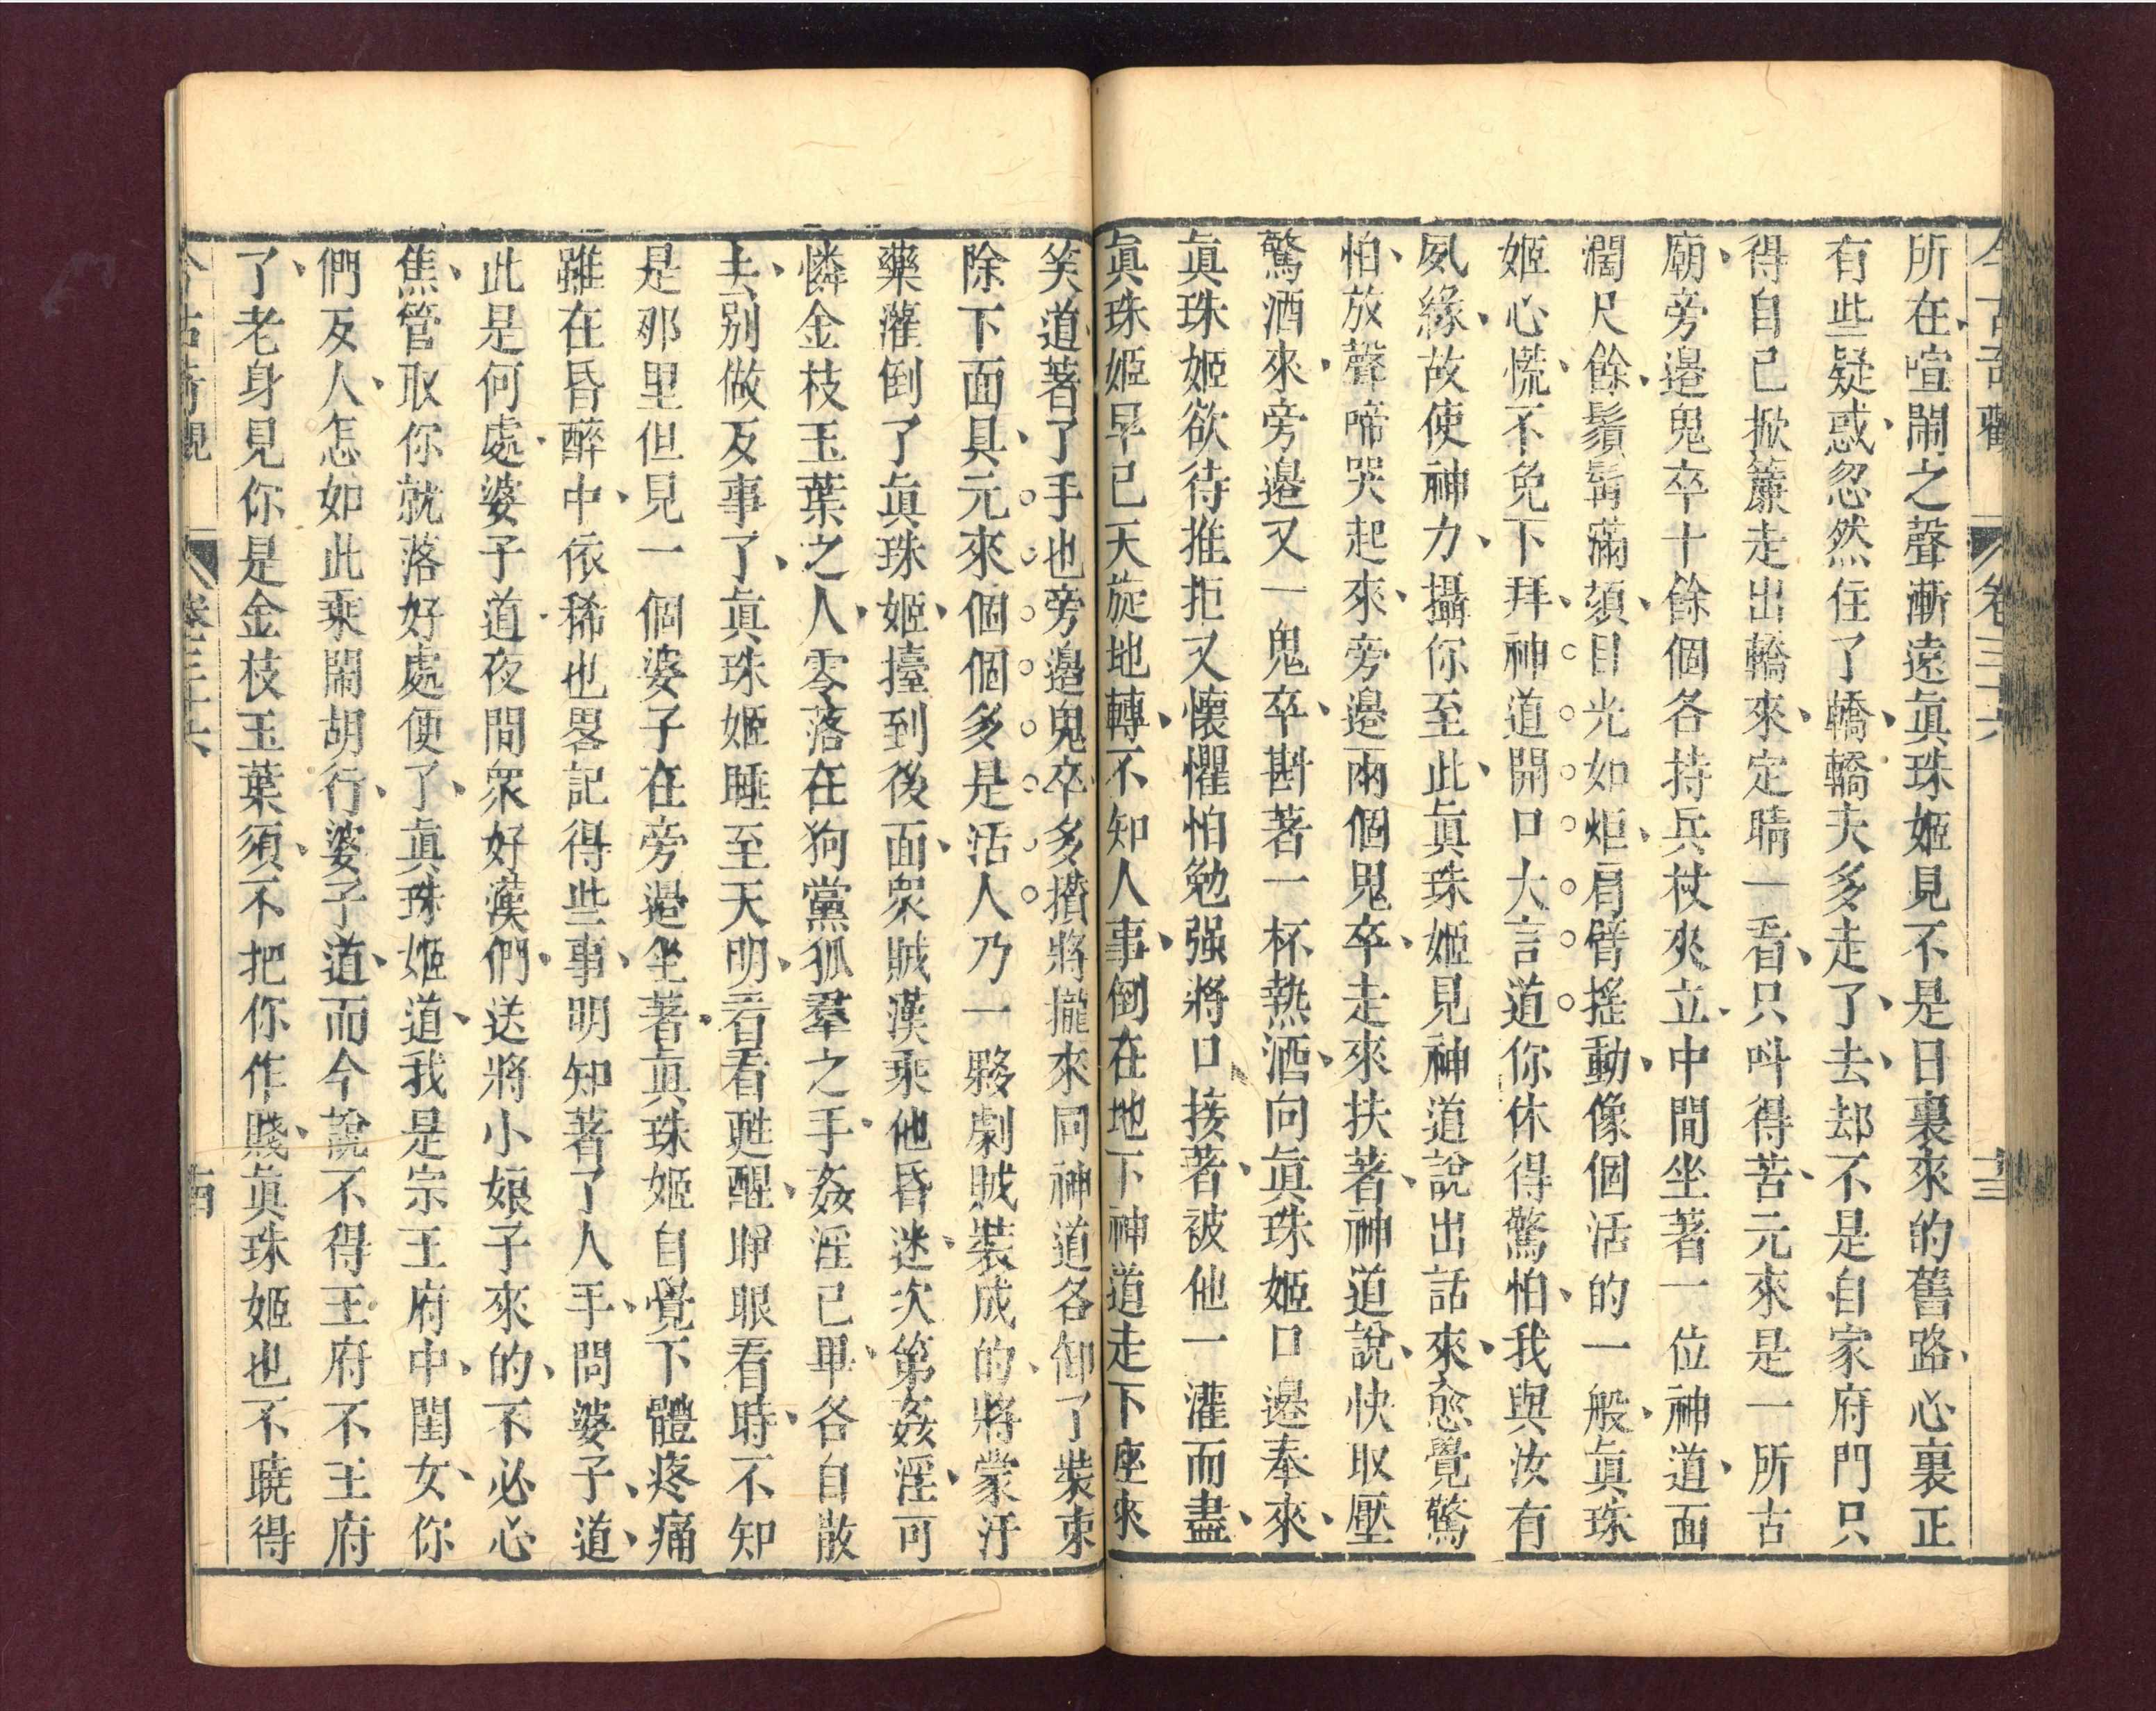 今古奇觀 卷三十六 十三
所在喧鬧之聲漸遠眞珠姬見不是日裏來的舊路心裏正
有些疑惑忽然住了轎轎夫多走了去却不是自家府門只
得自己掀簾走出轎來定睛一看只叫得苦元來是一所古
廟旁邉鬼卒十餘個各持兵杖夾立中間坐著一位神道面
濶尺餘鬚髯滿頦目光如炬肩臂搖動像個活的一般眞珠
姬心慌不免下拜神道開口大言道你休得驚怕我與汝有
夙緣故使神力攝你至此眞珠姬見神道說出話來愈覺驚
怕放聲啼哭起來旁邉兩個鬼卒走來扶著神道說快取壓
驚酒來旁邉又一鬼卒斟著一杯熱酒向眞珠姬口邉奉來
眞珠姬欲待推拒又懷懼怕勉强將口接著被他一灌而盡
眞珠姬早已天旋地轉不知人事倒在地下神道走下座來
笑道著了手也旁邉鬼卒多攢將攏來同神道各卸了裝束
除下面具元來個個多是活人乃一夥劇賊裝成的將蒙汗
藥灌倒了眞珠姬擡到後面衆賊漢乘他昏迷次第姦淫可
憐金枝玉葉之人零落在狗黨狐羣之手姦淫已畢各自散
去别做反事了眞珠姬睡至天明看看甦醒睜眼看時不知
是那里但見一個婆子在旁邉坐著眞珠姬自覺下體疼痛
雖在昏醉中依稀也畧記得些事明知著了人手問婆子道
此是何處婆子道夜間衆好漢們送將小娘子來的不必心
焦管取你就落好處便了眞珠姬道我是宗王府中閨女你
們反人怎如此乘鬧胡行婆子道而今說不得王府不王府
了老身見你是金枝玉葉須不把你作賤眞珠姬也不曉得
今古奇觀 卷三十六 十四